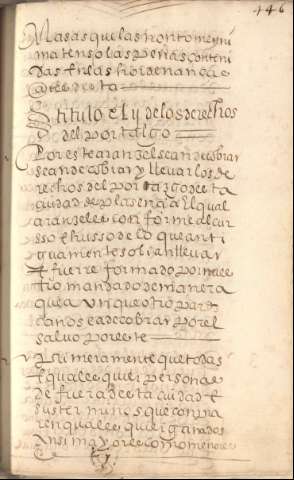 446
Masas que las no nto meyni
maten so las penas conteni
das En las hordenancas
desta
Titulo e Ly de los derechos
del portalgo
Por este aranzel se an de cobrar
se an de cobrar y llevar los de
rechos del portazgo desta
ciudad de plasençia El qual
aranzel es con forme al cur
sso E husso de lo que anti
guamente solian llevar
E fue rreformado por nues
tro mandado de manera
que aun que otro pares
ca no se a de cobrar por el
salvo por este
Primeramente que todas
E qualesquier personas
de fuera desta ciudad E
sus terminos que conpra
ren qualesquier ganados
Ansi mayores como menores